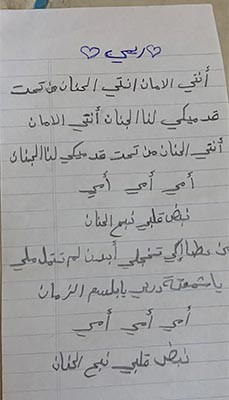 ♡ امي ♡
أنتي الامان انتي الحنان من تحت
قدميكي لنا الجنان أنتي الامان
أنتي الحنان من تحت قدميكي لنا الجنان
أمي أمي أمي
نبض قلبي نبع الحنان
عطائكي تبخلي أبدن لم تتململي
يا شمعتة دربي يا بلسم الزمان
أمي أمي أمي
نبض قلبي نبع الحنان